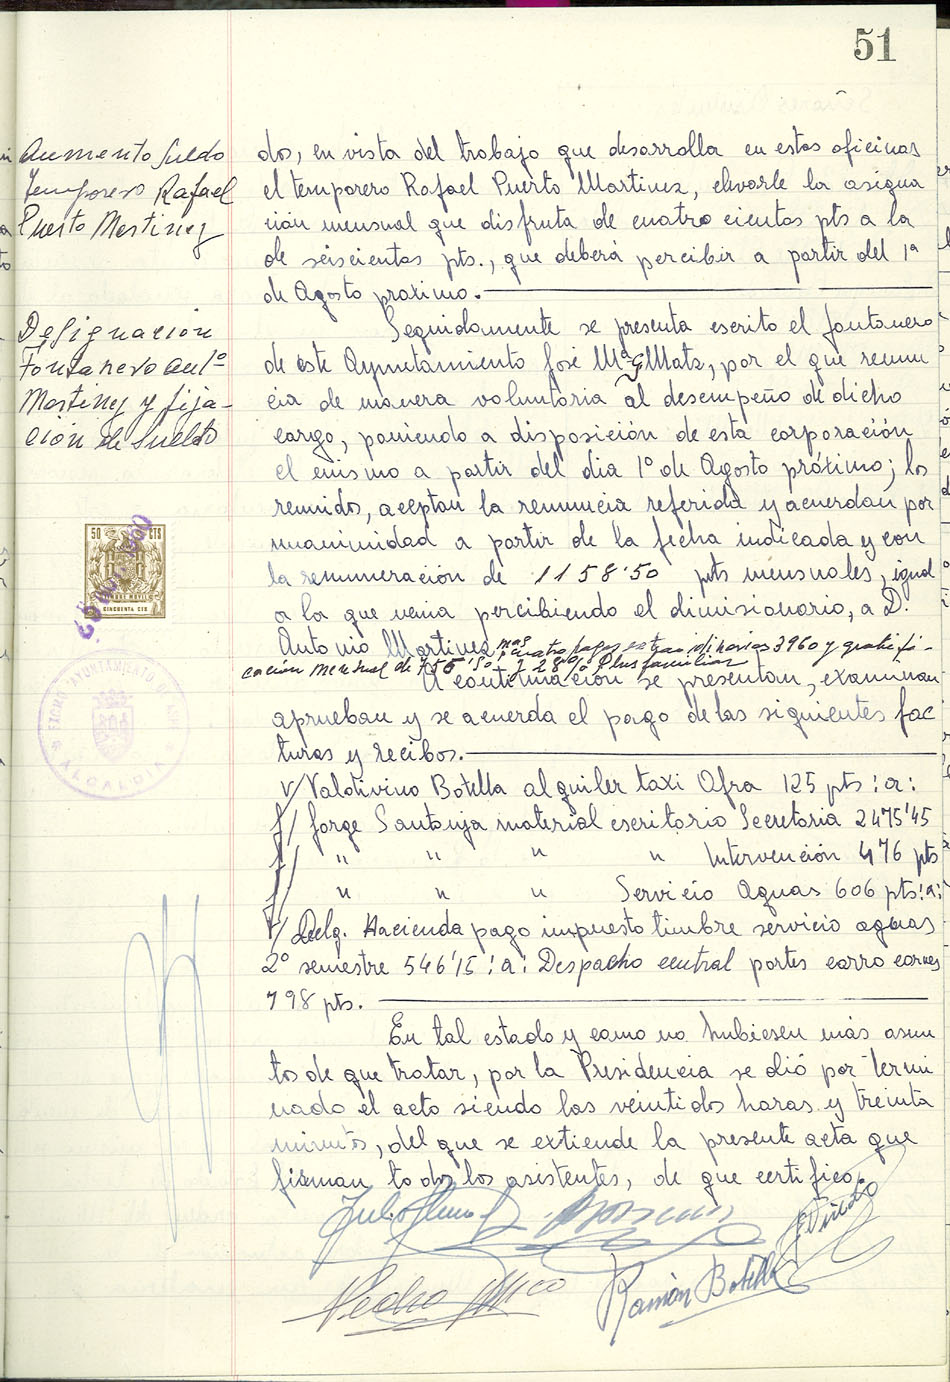 51
Aumento Sueldo
Temporero Rafael
Puerto Martinez
dos, en vista del trabajo que desarrolla en estas oficinas
el temporero Rafael Puerto Martinez, elevarle la asigna
ción mensual que disfruta de cuatro cientas pts a la
de seiscientas pts., que deberá percibir a partir del 1º
de Agosto proximo.
Designación
Fontanero
Martinez y fija-
ción de Sueldo
Seguidamente se presenta escrito el fontanero
de este Ayuntamiento José Mª G Matz, por el que renun
cia de manera voluntaria al desempeño de dicho
cargo, poniendo a disposición de esta corporación
el mismo a partir del dia 1º de Agosto próximo; los
reunidos, aceptan la renuncia referida y acuerdan por
unanimidad a partir de la fecha indicada y con
la remuneración de 1158'50 pts mensuales, igual
a la que venia percibiendo el dimisionario, a D.
Antonio Martinez, mas cuatro pagas extraordinarias 3960 y gratifi-
cación mensual de 755'50 y 28% Plus familiar
A continuación se presentan, examinan
aprueban y se acuerda el pago de las siguientes fac
turas y recibos.
50 CTS
TIMBRE MOVIL
CINCUENTA CTS
EXCMO. AYUNTAMIENTO DE
ALCALDIA
V/ Valdivino Botella alquiler taxi Afra 125 pts :a:
f/ Jorge Santonja material escritorio Secretaria 2475'45
f/ " " " " Intervención 476 pts
f/ " " " Servicio Aguas 606 pts :a:
V/ Delg. Hacienda pago impuesto timbre servicio aguas
2º semestre 546'15 :a: Despacho central portes carro carnes
798 pts.
En tal estado y como no hubiesen más asun
tos de que tratar, por la Presidencia se dió por termi
nado el acto siendo las veintidos horas y treinta
minutos, del que se extiende la presente acta que
firman todos los asistentes, de que certifico.
Pedro Mico
Ramón Botella